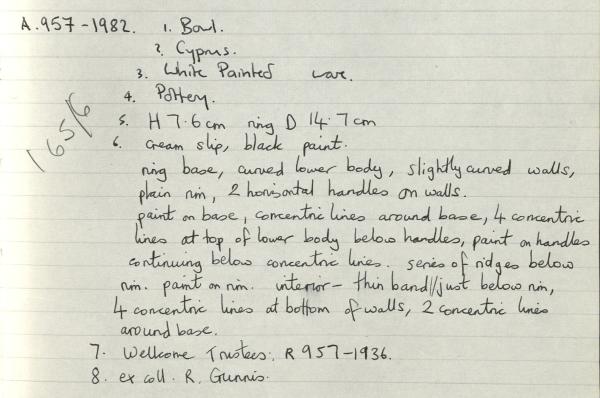 A.957-1982. 1. Bowl.
2. Cyprus.
3. White Painted ware.
4. Pottery.
5. H 7.6cm ring D 14.7cm
6. cream slip, black paint.
ring base, curved lower body, slightly curved walls,
plain rim, 2 horizontal handles on walls.
paint on base, concentric lines around base, 4 concentric
lines at top of lower body below handles, paint on handles
continuing below concentric lines. series of ridges below
rim. paint on rim. interior - thin band//just below rim,
4 concentric lines at bottom of walls, 2 concentric lines
around base.
7. Wellcome Trustees. R 957-1936.
8. ex coll. R. Gunnis.
165/6